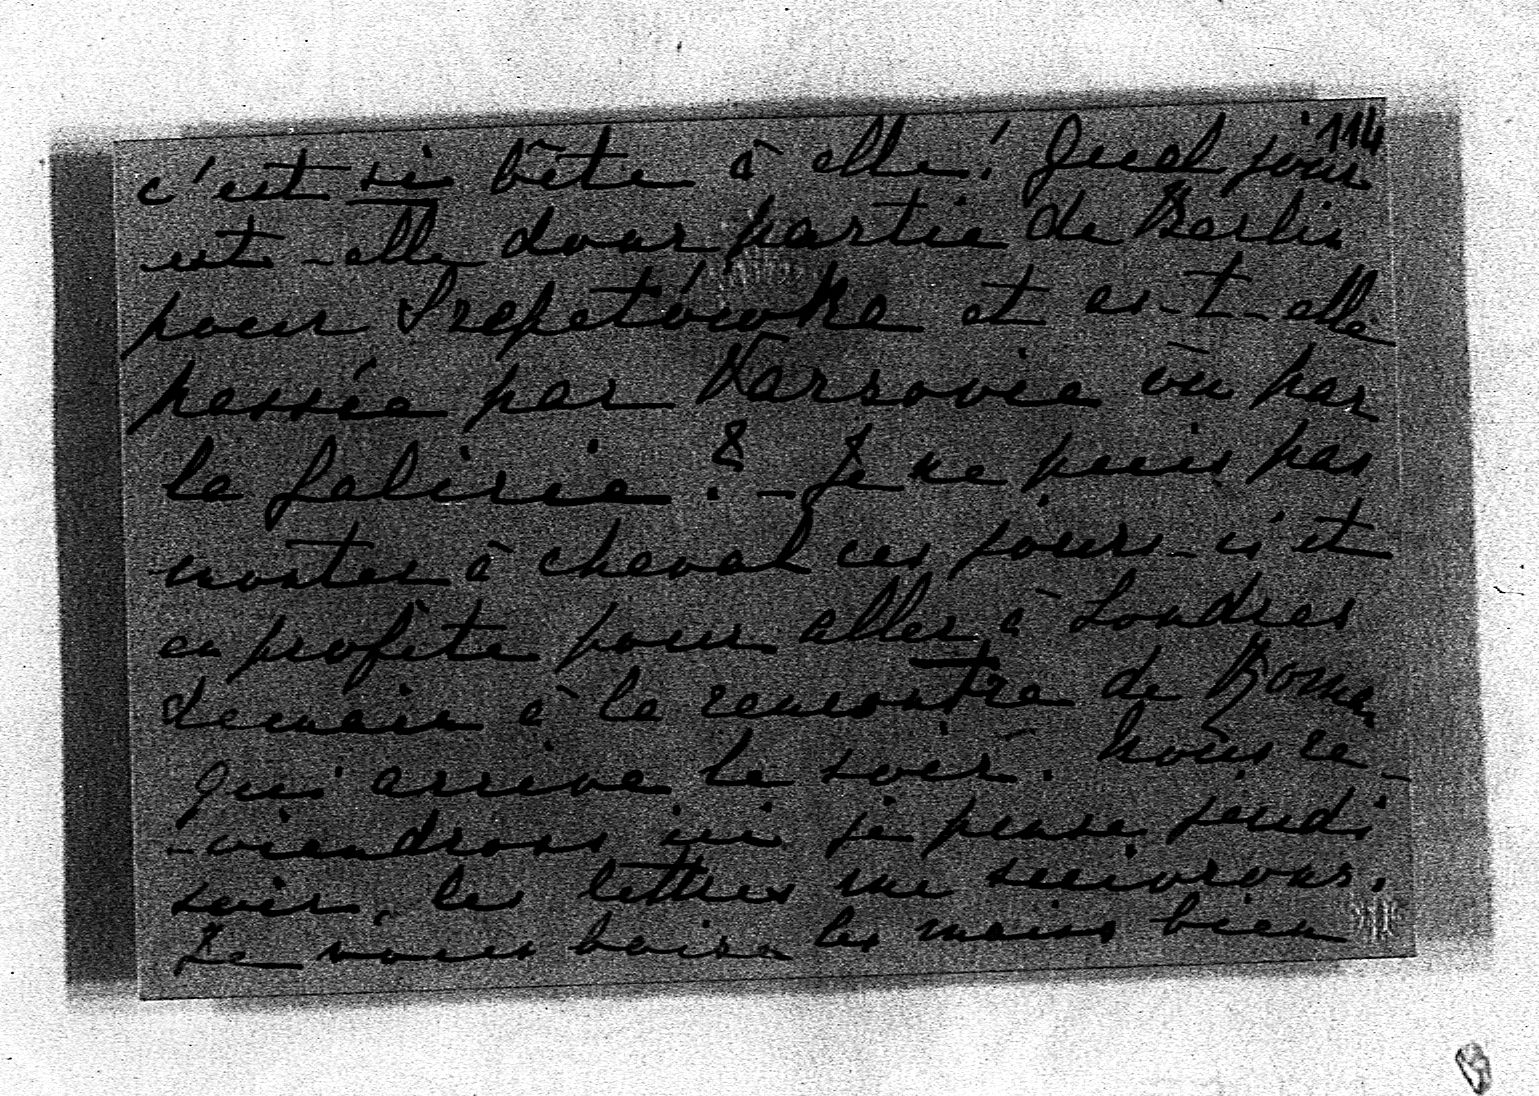 114
c'est si bête à elle! Quel jour
est-elle donc partie de Berlin
pour Szepetówka et es-t-elle
passée par Varsovie ou par
la Galicie? - Je ne puis pas
monter à cheval ces jours-ci et
en profite pour aller à Londres
demain à la rencontre de Roman
qui arrive le soir. Nous re-
-viendrons ici je pense jeudi
soir, les lettres me suivront.
Je vous baise les mains bien